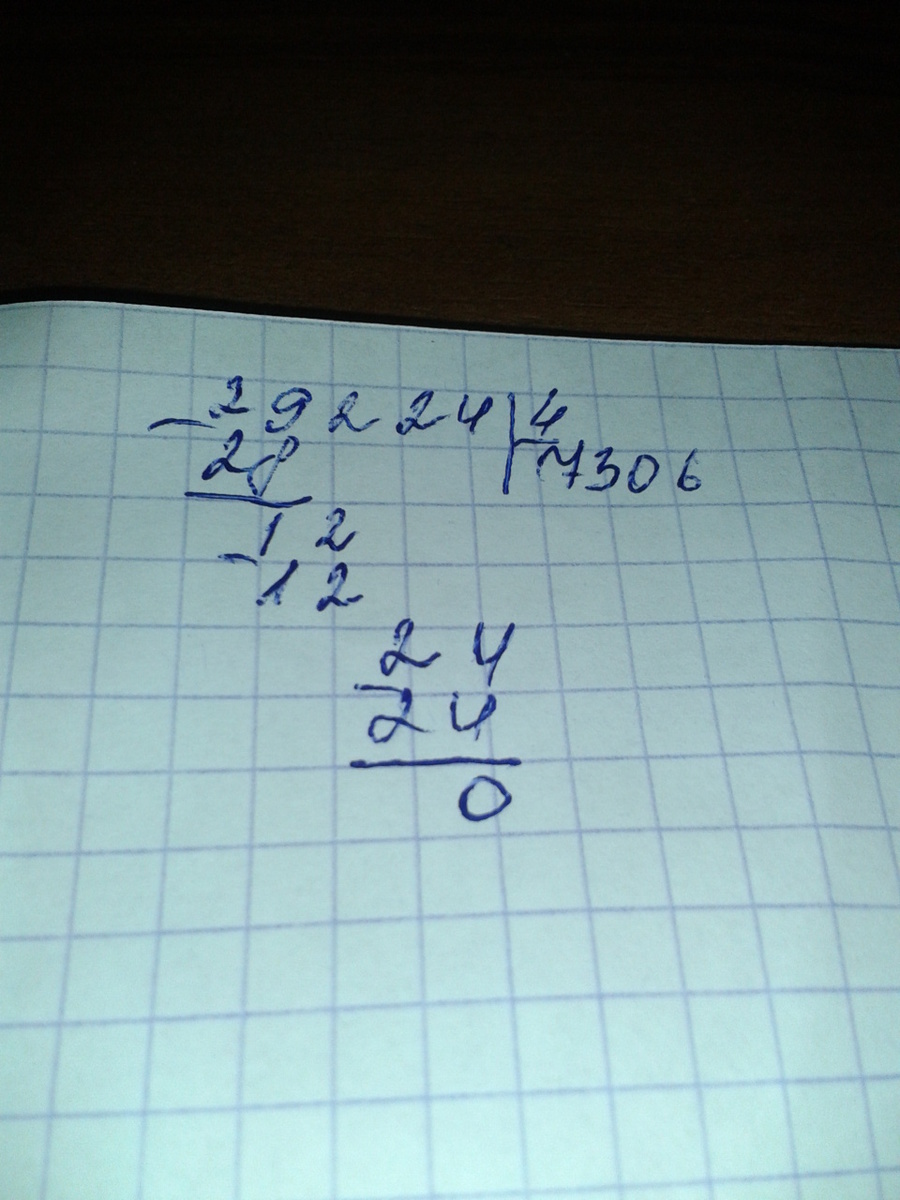 29224 4
28 7306
12
12
24
24
0